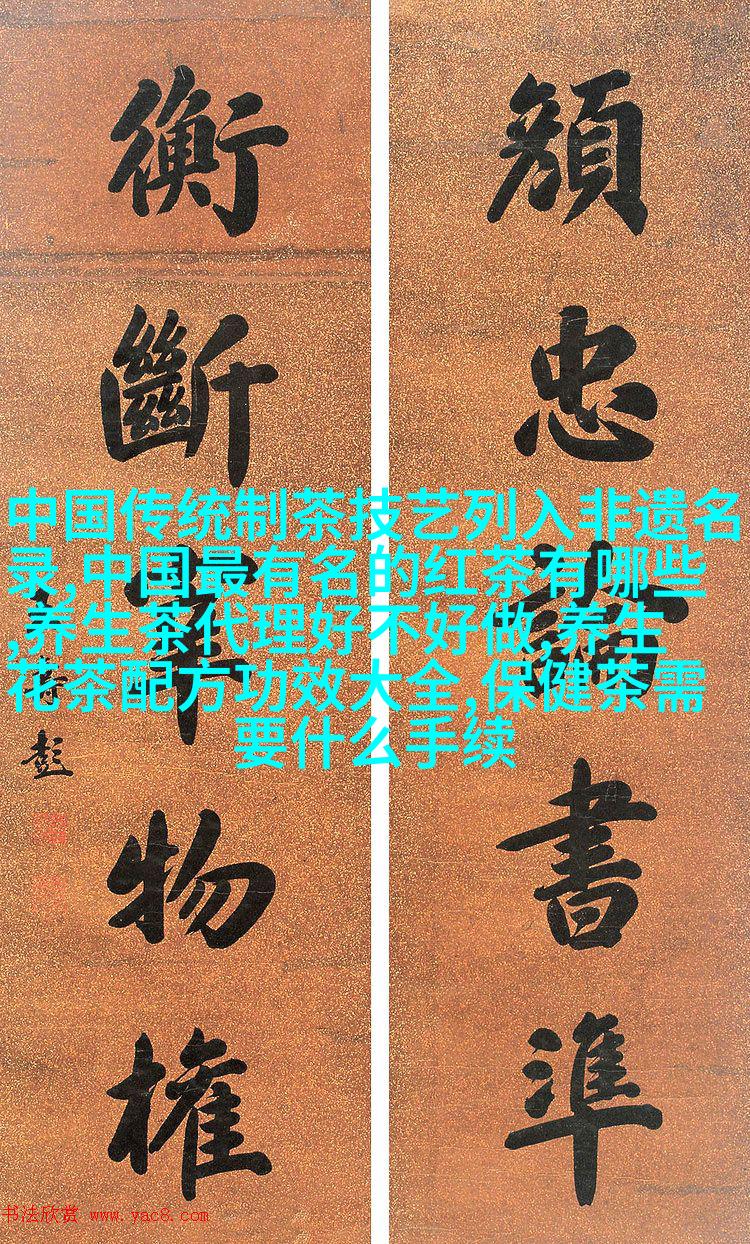 顔忠書準
衡斷物權
彭
中国传统制茶技艺列入非遗名
录,中国最有名的红茶有哪些
,养生茶代理好不好做,养生
花茶配方功效大全,保健茶需
要什么手续
书法欣赏 www.yac8.com